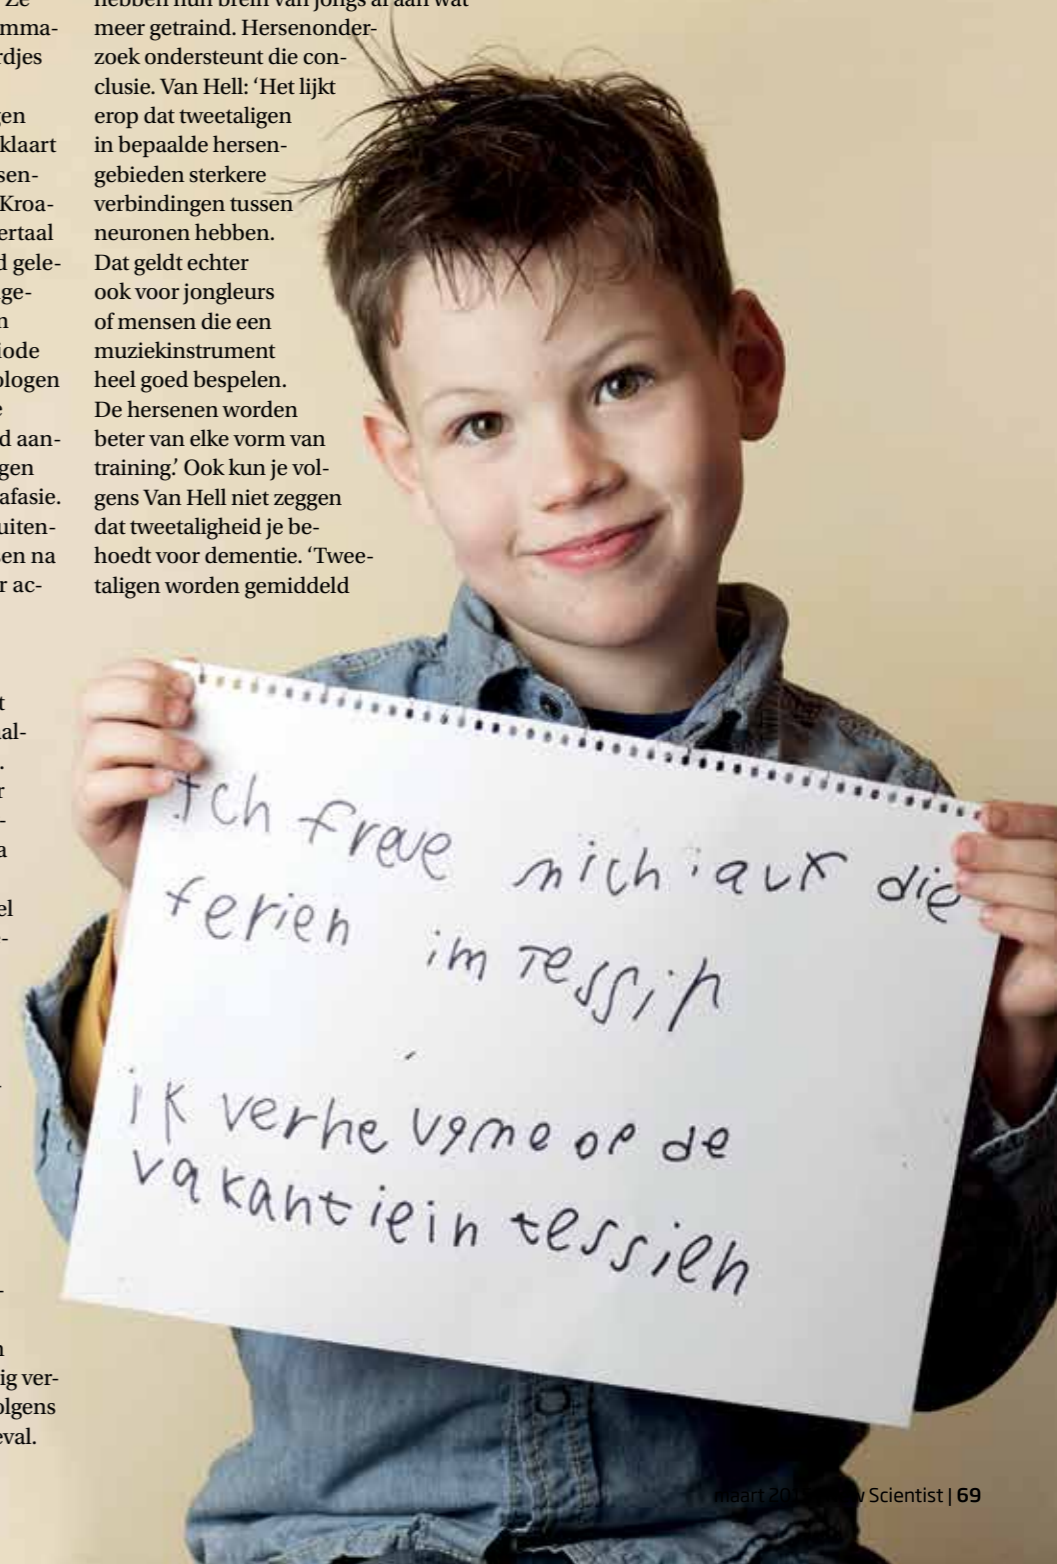 Ze
mma-
rdjes
gen
klaart
sen-
Kroa-
ertaal
d gele-
ge-
n
iode
ologen
e
d aan-
gen
afasie.
uiten-
sen na
r ac-
t
al-
.
r
-
a
el
-
-
n
ig ver-
olgens
eval.
hebben hun brein van jongs af aan wat
meer getraind. Hersenonder-
zoek ondersteunt die con-
clusie. Van Hell: ‘Het lijkt
erop dat tweetaligen
in bepaalde hersen-
gebieden sterkere
verbindingen tussen
neuronen hebben.
Dat geldt echter
ook voor jongleurs
of mensen die een
muziekinstrument
heel goed bespelen.
De hersenen worden
beter van elke vorm van
training.’ Ook kun je vol-
gens Van Hell niet zeggen
dat tweetaligheid je be-
hoedt voor dementie. ‘Twee-
taligen worden gemiddeld
Ich freue mich auf die
ferien im Tessin
ik verhe ugme op de
vakantiein tessien
maart 20 Scientist | 69